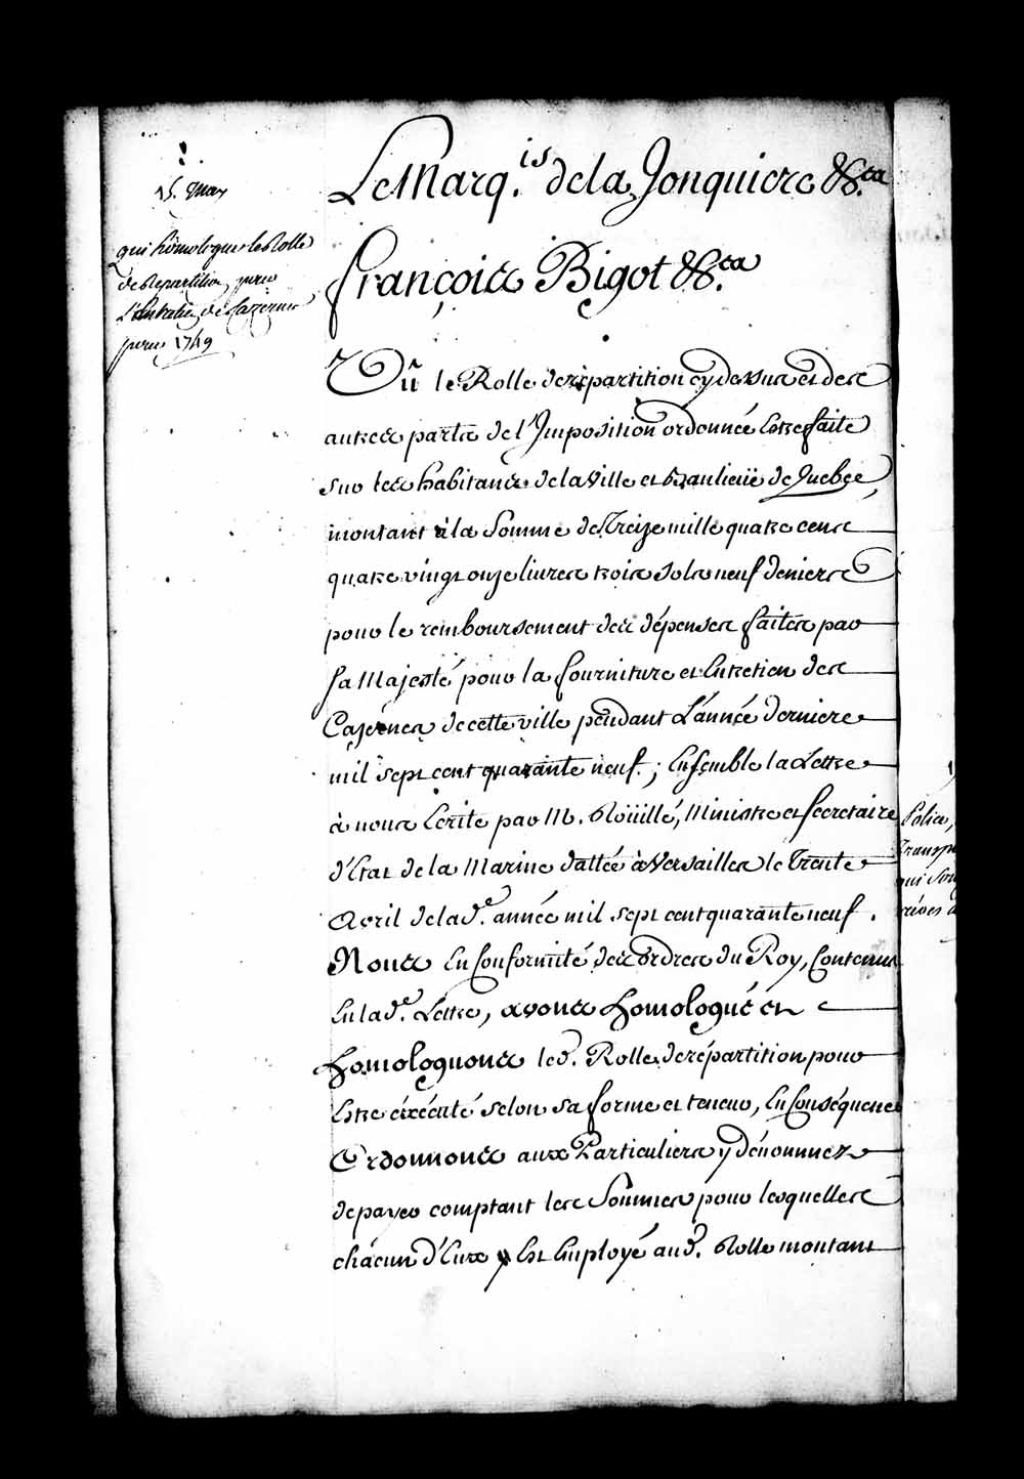 15. May
qui homologue le Rolle
de Repartition pour
l'Entretien des Cazernes
pour 1749
Le Marq.is de la Jonquiere &c.ta
françois Bigot &c.ta
Vû le Rolle de répartition cy dessus et des
autres parts de l'Imposition ordonnée Estre faite
sur les habitans de la Ville et Banlieüe de Quebec,
montant à la Somme de Treize mille quatre cens
quatre vingt onze livres trois sols neuf deniers
pour le remboursement des dépenses faites par
sa Majesté pour la fourniture et Entretien des
Cazernes de cette ville pendant L'année derniere
mil sept cent quarante neuf. ; Ensemble la Lettre
à nous Ecrite par M. Roüillé, Ministre et secretaire
d'Etat de la Marine dattée à Versailles le Trente
Avril de lad.e année mil sept cent quarante neuf.
Nous En Conformité des ordres du Roy, Contenus
En lad.e Lettre, avons homologué et
homologuons led. Rolle de répartition pour
Estre éxécuté selon sa forme et teneur, En Conséquence
Ordonnons aux Particuliers y dénommez
de payer comptant les Sommes pour lesquelles
chácun d'Eux y Est Employé aud. Rolle montant
Police,
qui sont